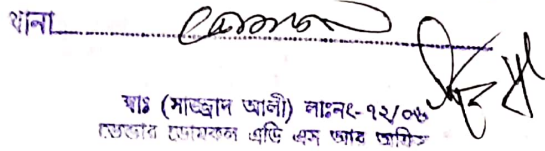 থানা
স্বাঃ (সাজ্জাদ আলী) লাঃনং-১২/০৬
ভেন্ডার ডোমকল এডি এস আর অফিস